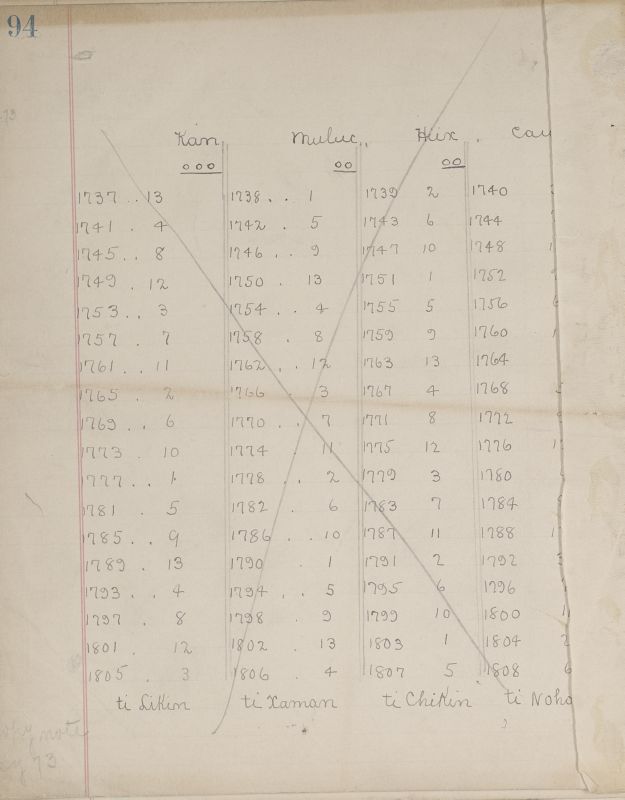 94
Kan Muluc Hix Cau
ooo oo oo
1737 .. 13 1738 . . 1 1739 2 1740
1741 . 4 1742 . 5 1743 6 1744
1745 . . 8 1746 . . 9 1747 10 1748 1
1749 . 12 1750 . 13 1751 1 1752
1753 . . 3 1754 . . 4 1755 5 1756 6
1757 . 7 1758 . 8 1759 9 1760 1
1761 . . 11 1762 . . 12 1763 13 1764
1765 . 2 1766 . 3 1767 4 1768
1769 . . 6 1770 . . 7 1771 8 1772
1773 . 10 1774 . 11 1775 12 1776 1
1777 . . 1 1778 . . 2 1779 3 1780
1781 . 5 1782 . 6 1783 7 1784
1785 . . 9 1786 . . 10 1787 11 1788 1
1789 . 13 1790 . 1 1791 2 1792 3
1793 . . 4 1794 . . 5 1795 6 1796
1797 . 8 1798 . 9 1799 10 1800 1
1801 . 12 1802 . 13 1803 1 1804 2
1805 . 3 1806 . 4 1807 5 1808 6
ti Likin ti Xaman ti Chikin ti Noho
note
73